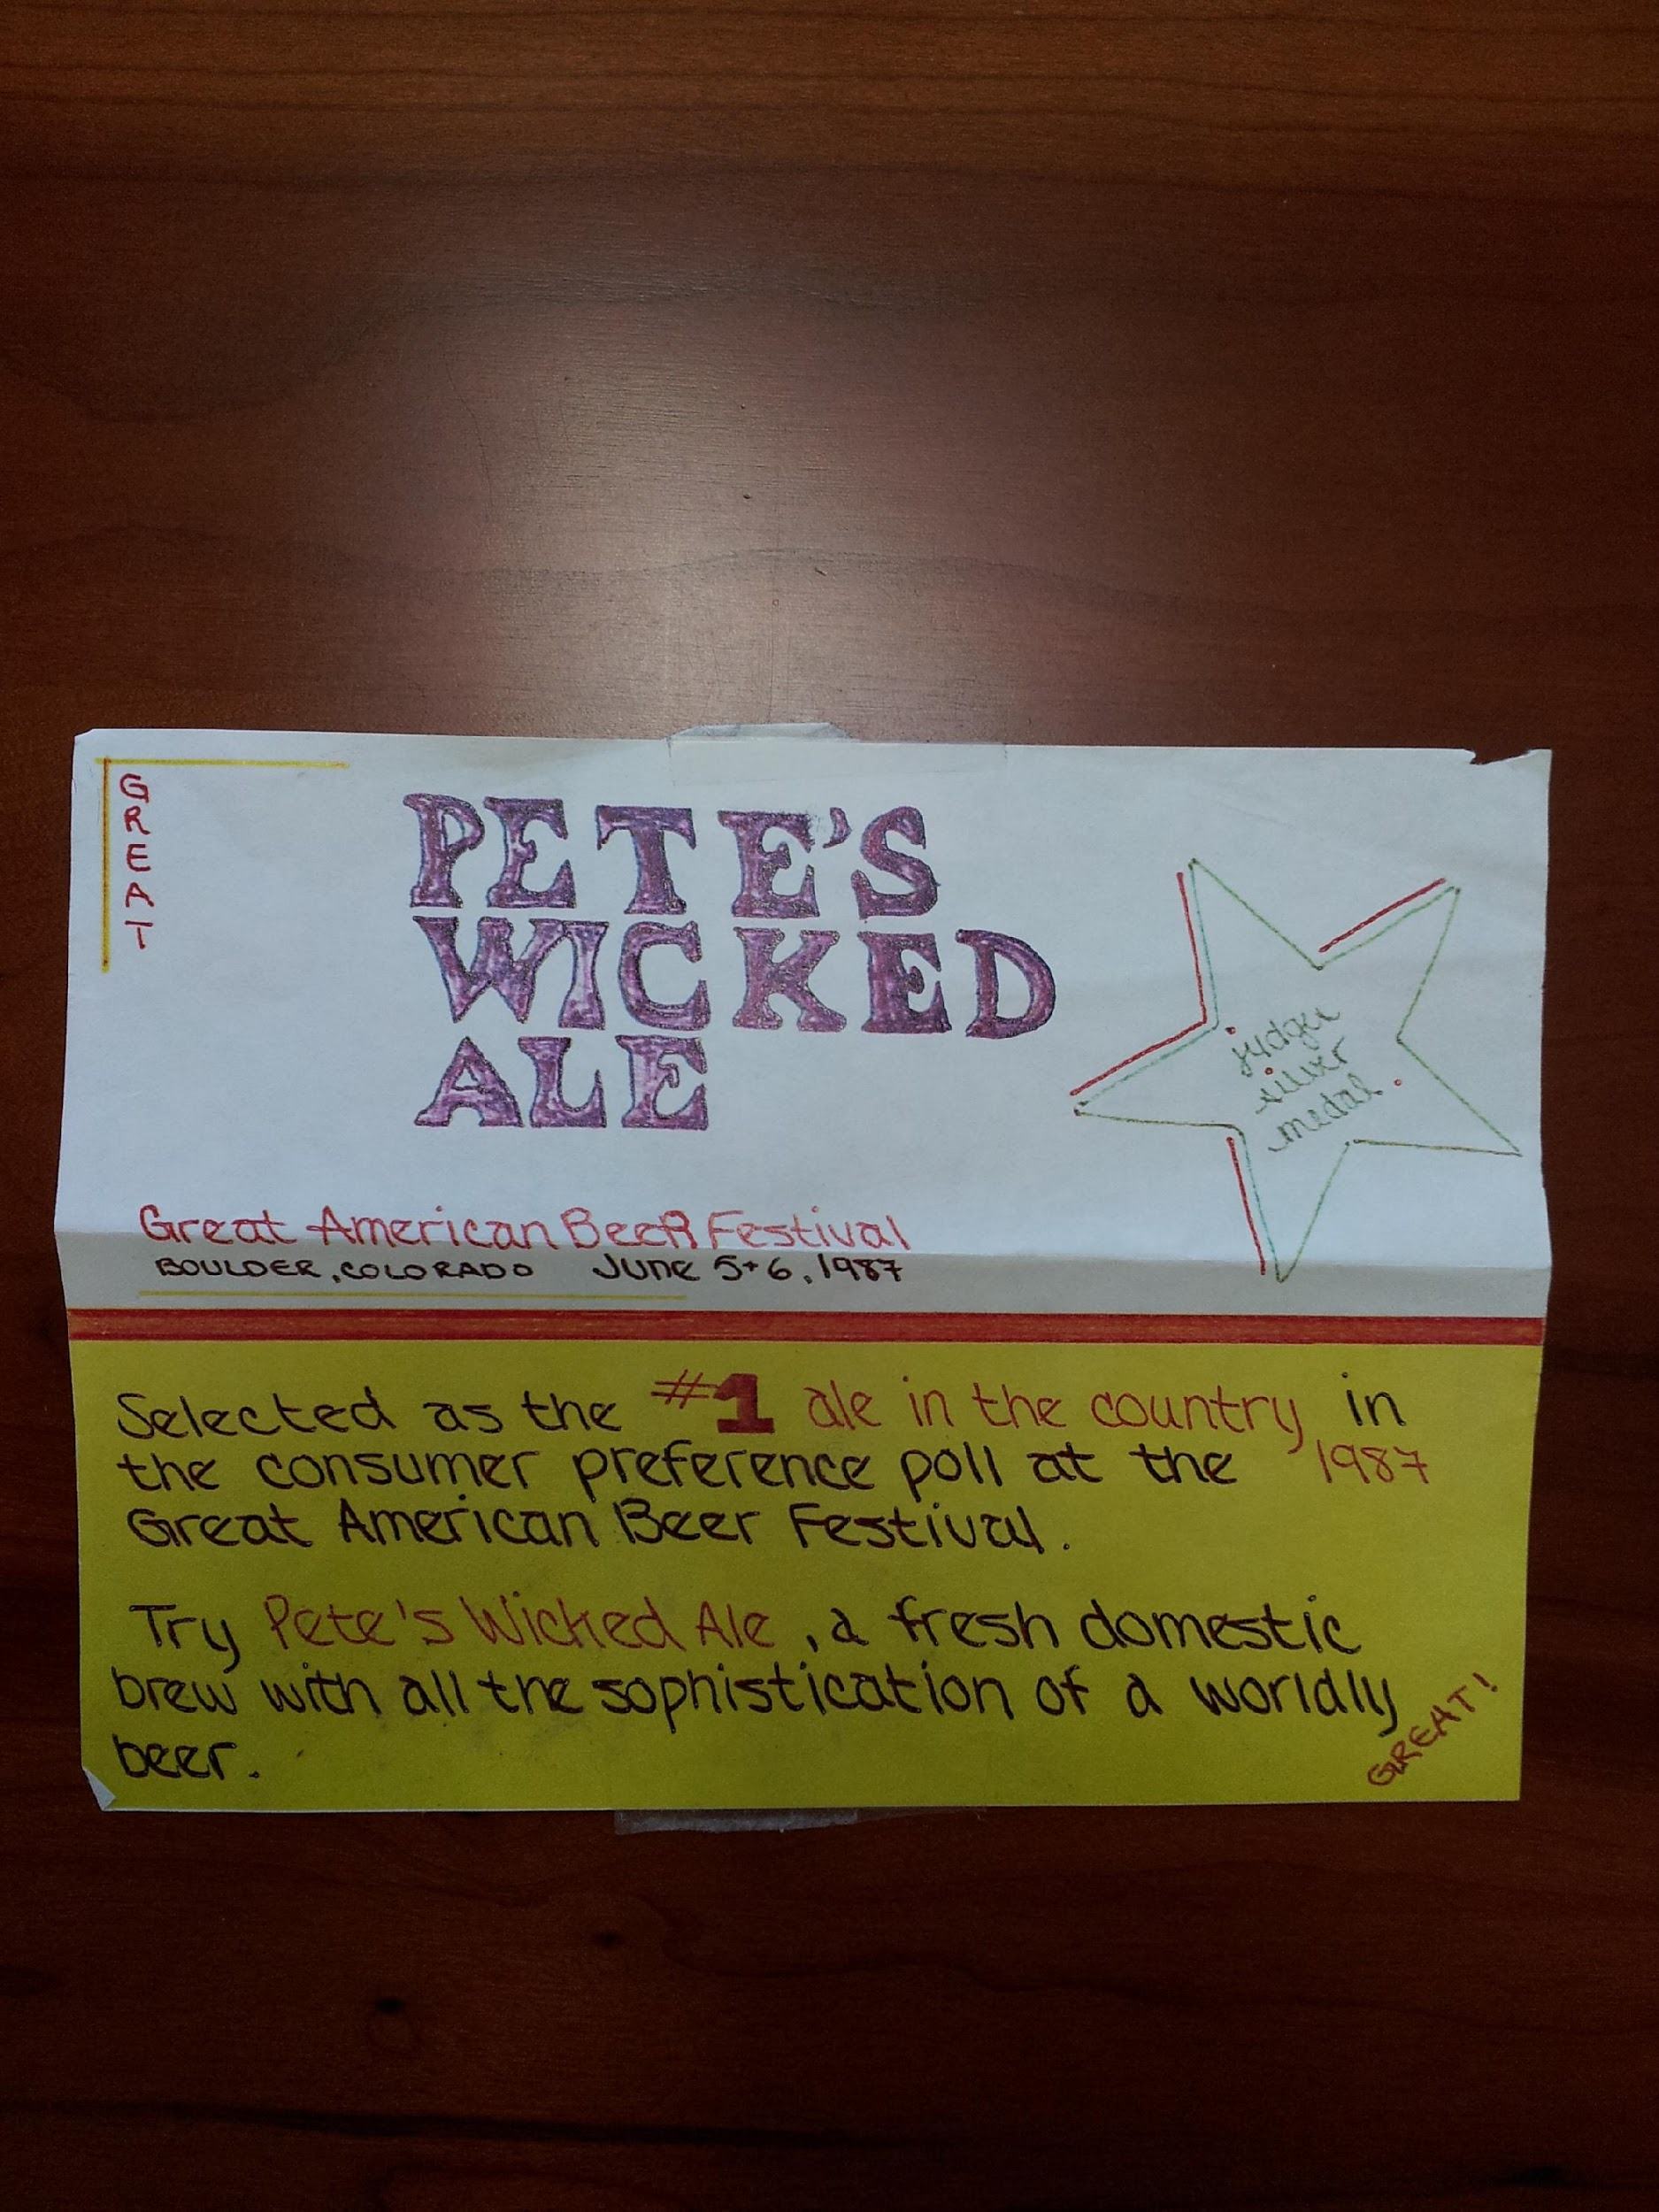 GREAT
PETE'S
WICKED
ALE
judges
silver
medal
Great American Beer Festival
BOULDER, COLORADO JUNE 5+6, 1987
Selected as the #1 ale in the country in
the consumer preference poll at the 1987
Great American Beer Festival.
Try Pete's Wicked Ale, a fresh domestic
brew with all the sophistication of a worldly
beer.
GREAT!